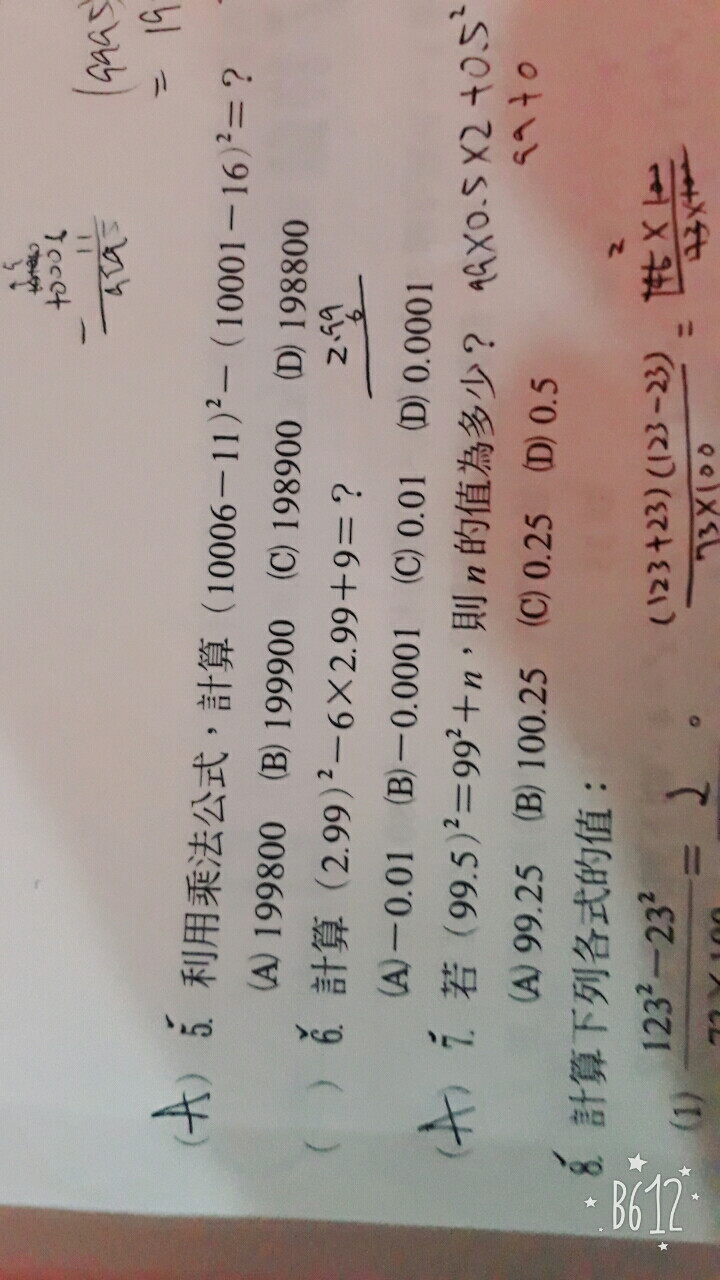 (9995)
= 19
(A) 5. 利用乘法公式，計算（10006－11）²－（10001－16）²＝？
(A) 199800 (B) 199900 (C) 198900 (D) 198800
( ) 6. 計算（2.99）²－6×2.99＋9＝？
2.99
6
(A)－0.01 (B)－0.0001 (C) 0.01 (D) 0.0001
(A) 7. 若（99.5）²＝99²＋n，則 n 的值為多少？ 99×0.5×2+0.5²
99+0
(A) 99.25 (B) 100.25 (C) 0.25 (D) 0.5
8. 計算下列各式的值：
(1) 123²－23² ＝ 2 。 (123+23)(123-23) = 146×100
73×100 73×100
B612